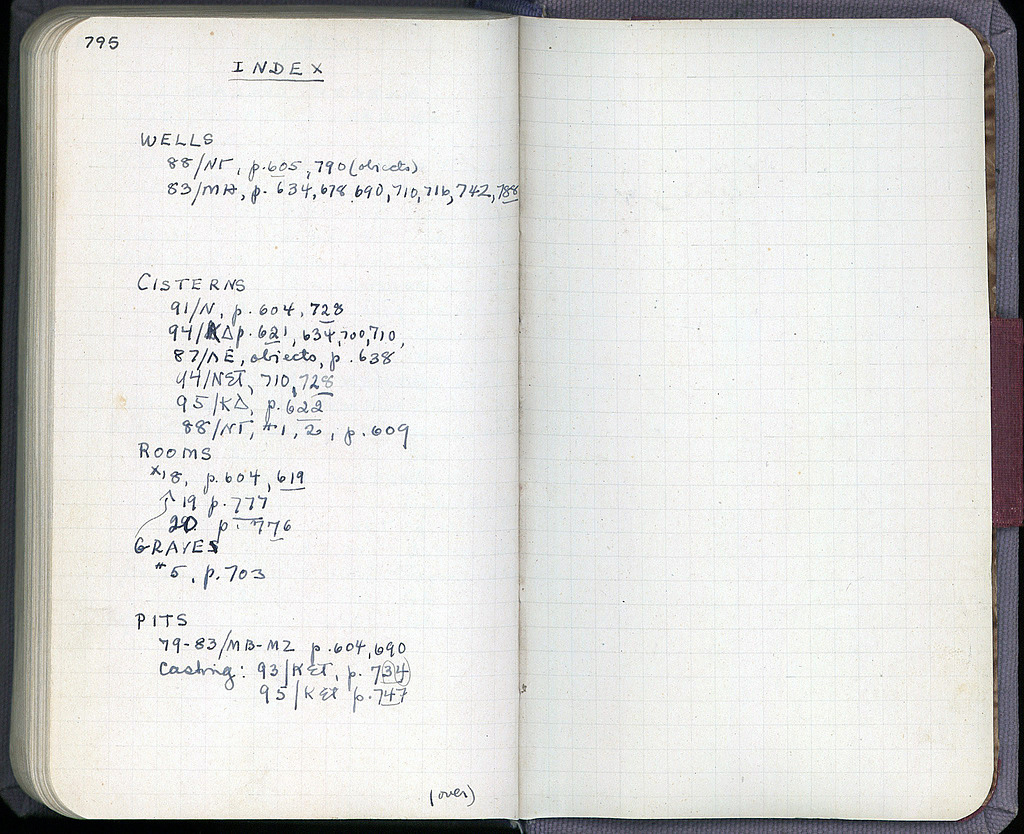 795
INDEX
WELLS
88/ΝΓ, p.605, 790 (objects)
83/ΜΗ, p. 634, 678 690, 710, 716, 742, 788
CISTERNS
91/Ν, p. 604, 728
94/ΚΔ p. 621, 634, 700, 710,
87/ΛΕ, objects, p. 638
94/ΝΣΤ, 710, 728
95/ΚΔ, p. 622
88/ΝΓ, #1, 2, p. 609
ROOMS
8, p. 604, 619
19 p. 777
20 p. 776
GRAVES
#5, p. 703
PITS
79-83/ΜΒ-ΜΖ p. 604, 690
Casting: 93/ΚΣΤ, p. 734
95/ΚΣΤ p. 747
(over)